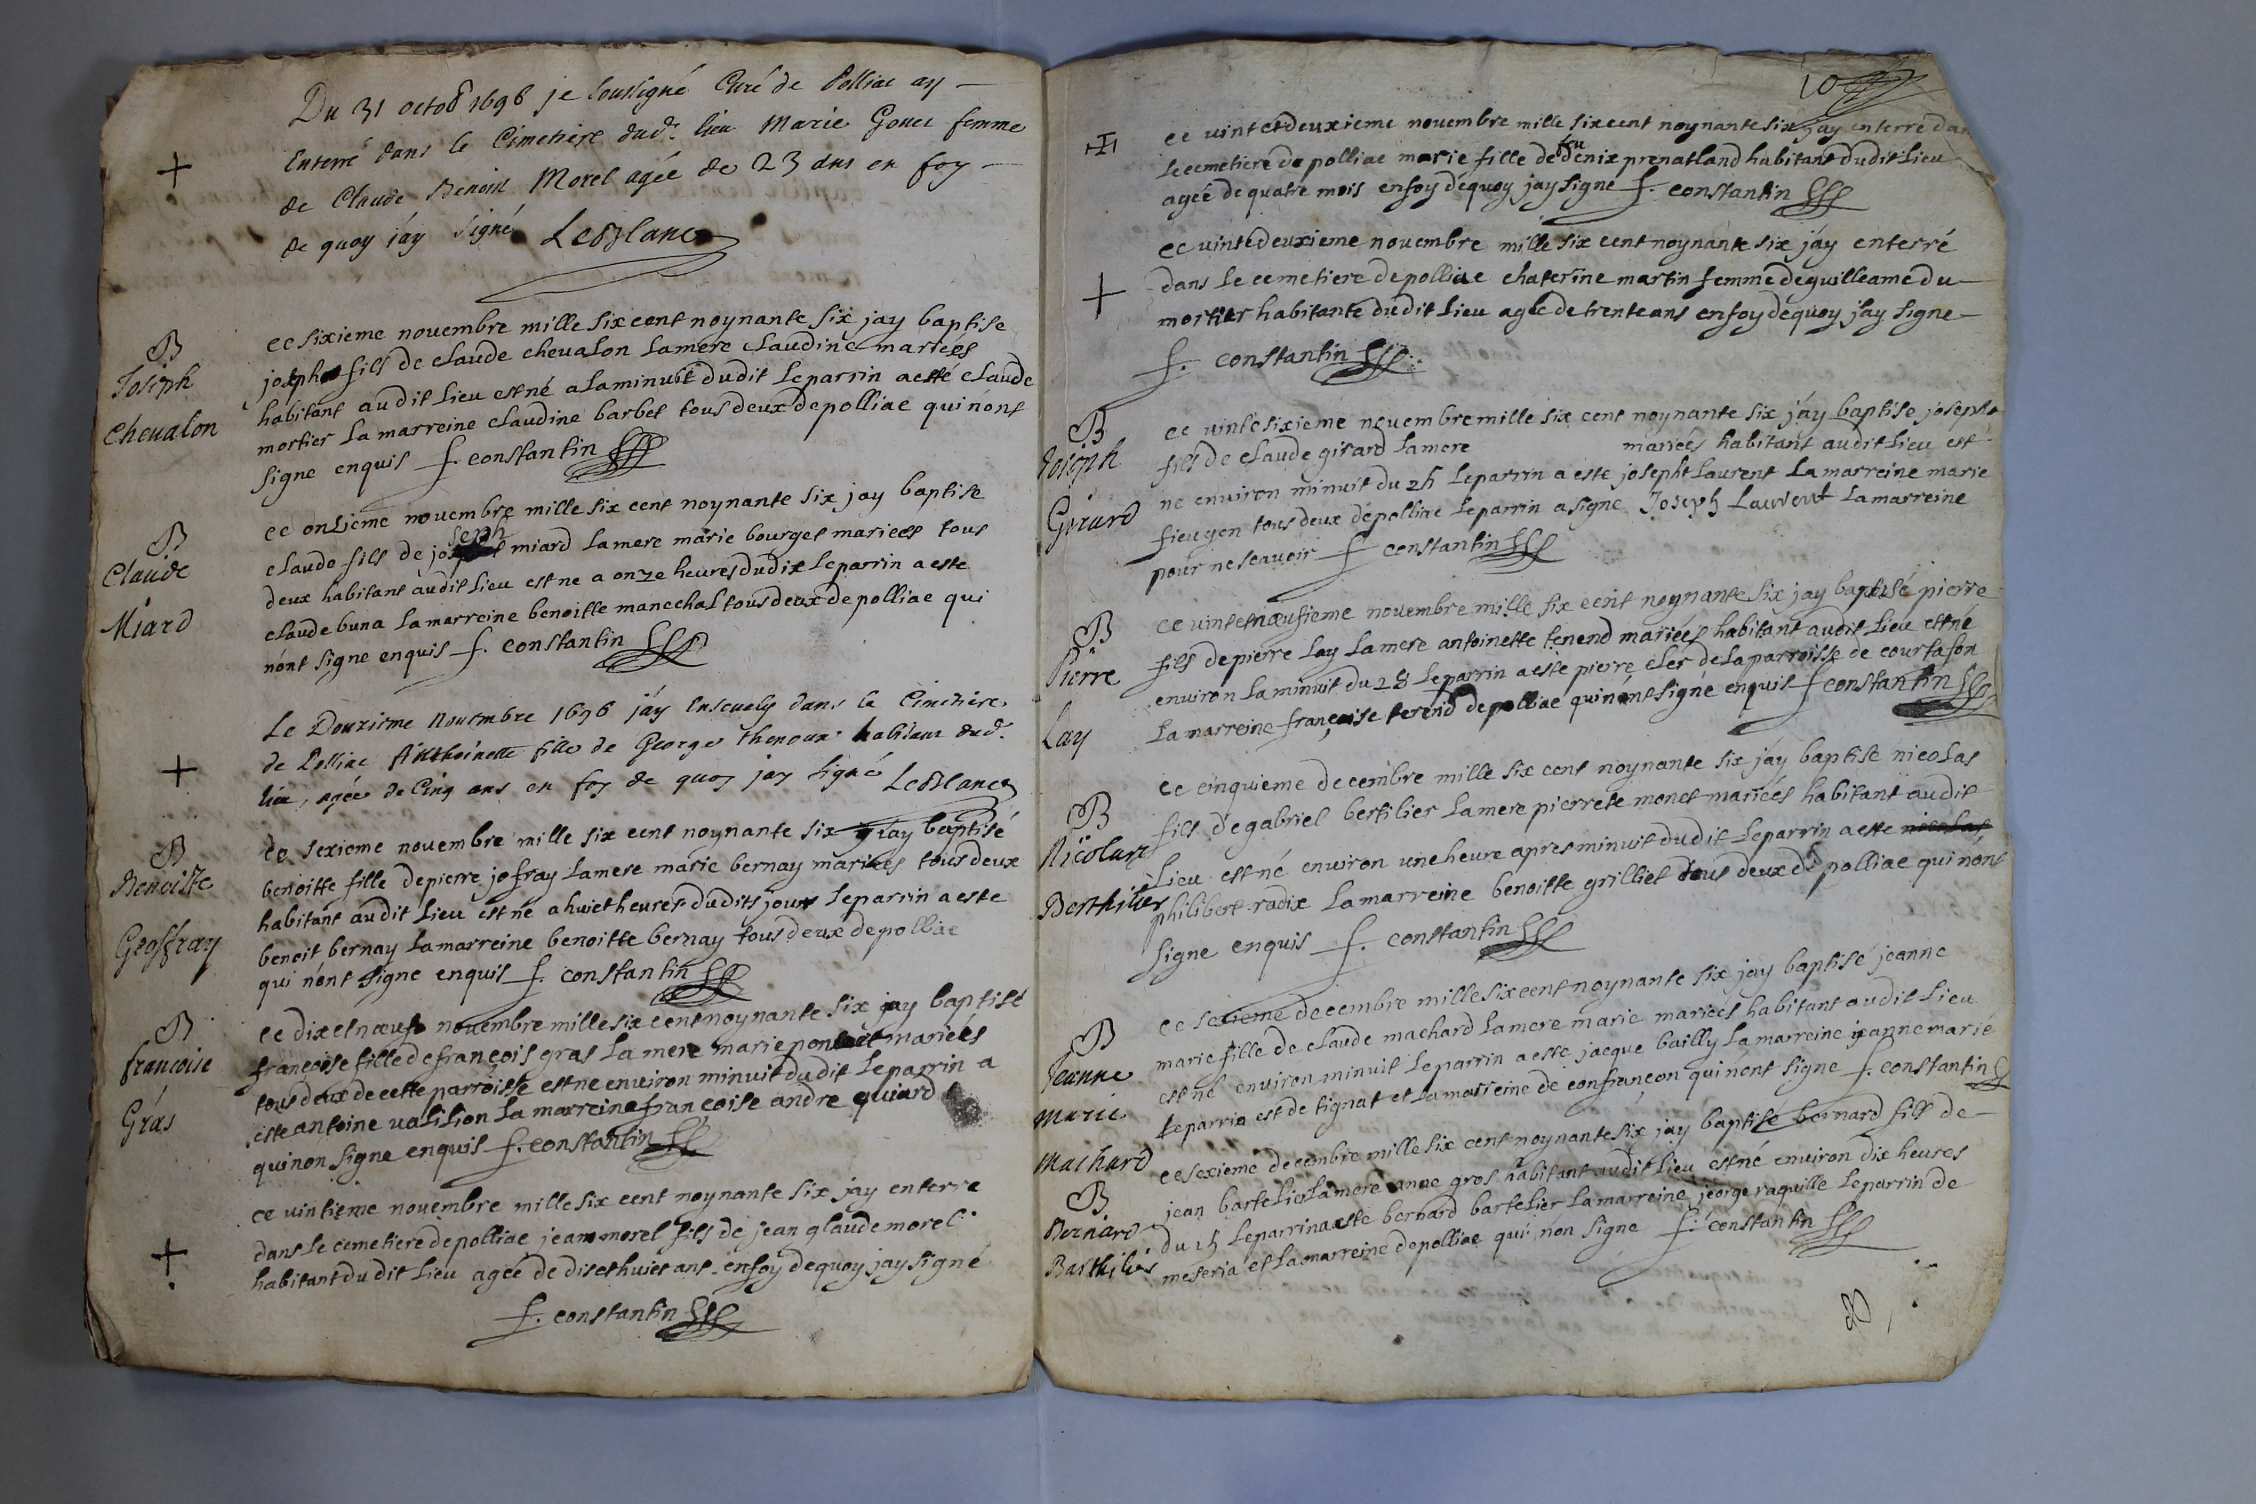 Du 31 octob 1696 je soussigné Curé de Polliac ay
Enterré dans le Cimetiere dud. lieu Marie Gouet femme
de Claude Benoist Morel agée de 23 ans en foy
de quoy j'ay signé LeBlanc
B
Joseph
Chevalon
ce sixieme novembre mille six cent noynante six jay baptise
joseph fils de claude chevalon la mere claudine mariees
habitant audit lieu est né a la minuit dudit le parrin a esté claude
mortier la marreine claudine barbet tous deux de polliac qui nont
signe enquis f. constantin
B
Claude
Miard
ce onzieme novembre mille six cent noynante six jay baptise
claude fils de joseph miard la mere marie bourget mariees tous
deux habitant audit lieu est ne a onze heures dudit le parrin a este
claude buna la marreine benoitte manechal tous deux de polliac qui
nont signe enquis f. constantin
Le Douzieme Novembre 1696 j'ay Ensevely dans le Cimetiere
de Polliac Anthoinette fille de George Thenoux habitant dud.
lieu, agée de Cinq ans en foy de quoy jay signé LeBlanc
B
Benoiste
Geoffray
ce sexieme novembre mille six cent noynante six jay baptisé
benoitte fille de pierre jofray la mere marie bernay mariees tous deux
habitant audit lieu est né a huict heures dudits jour le parrin a este
benoit bernay la marreine benoitte bernay tous deux de polliac
qui n'ont signe enquis f. constantin
B
francoise
Gras
ce dixetnoeuf novembre mille six cent noynante six jay baptisé
françoise fille de françois gras la mere marie mariées
tous deux de cette parroisse est ne environ minuit dudit le parrin a
este antoine valilion la marreine françoise andre guiard
qui non signe enquis f. constantin
ce vintieme novembre mille six cent noynante six jay enterre
dans le cemetiere de polliac jean morel fils de jean glaude morel
habitant dudit lieu agée de disethuict ans en foy de quoy jay signé
f. constantin
10
ce vintetdeuxieme novembre mille six cent noynante six jay enterre dan
le cemetiere de polliac marie fille de feu denix prenatland habitant dudit lieu
agée de quatre mois en foy de quoy jay signe f. constantin
ce vintedeuxieme novembre mille six cent noynante six jáy enterré
dans le cemetiere de polliac chaterine martin femme de guilleame du
mortier habitante dudit lieu agée de trente ans en foy de quoy jay signe
f. constantin
B
Joseph
Girard
ce vintesixieme novembre mille six cent noynante six jáy baptise joseph
fils de claude girard la mere mariées habitant audit lieu est
ne environ minuit du 25 le parrin a este josepht laurent la marreine marie
fieugon tous deux de polliac le parrin a signe Joseph Laurent la marreine
pour ne scavoir f constantin
B
Pierre
Lay
ce vintetnoeufieme novembre mille six cent noynante six jay baptisé pierre
fils de pierre lay la mere antoinette tenend mariées habitant audit lieu est né
environ la minuit du 28 le parrin a este pierre cler de la parroisse de courtafon
la marreine françoise terend de polliac qui nont signé enquis f constantin
B
Nicolas
Berthilier
ce cinquieme decembre mille six cent noynante six jáy baptise nicolas
fils de gabriel bertilier la mere pierrete monet mariées habitant audit
lieu est né environ une heure apres minuit dudit le parrin a este nicolas
philibert radix la marreine benoitte grilliet tous deux de polliac qui nont
signe enquis f. constantin
B
Jeanne
Marie
Machard
ce sexieme decembre mille six cent noynante six jay baptisé jeanne
marie fille de claude machard la mere marie mariees habitant audit lieu
est né environ minuit le parrin a este jacque bailly la marreine jeanne marie
le parrin est de tignat et la marreine de confrançon qui nont signe f. constantin
B
Bernard
Barthilier
ce sexieme decembre mille six cent noynante six jay baptise bernard fils de
jean bartelier la mere anne gros habitant audit lieu est né environ dix heures
du 15 le parrin a este bernard bartelier la marreine jeorge raquille le parrin de
meseria et la marreine de polliac qui non signe f. constantin